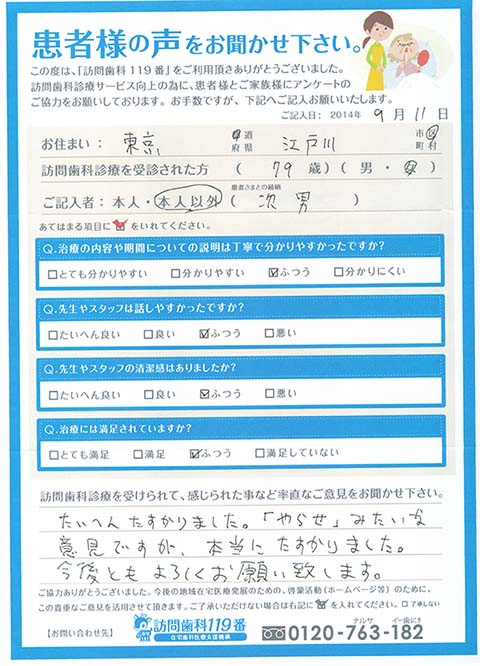 患者様の声をお聞かせ下さい。
この度は、「訪問歯科119番」をご利用頂きありがとうございました。
訪問歯科診療サービス向上の為に、患者様とご家族様にアンケートの
ご協力をお願いしております。お手数ですが、下記へご記入お願いいたします。
ご記入日： 2014年 9月11日
お住まい： 東京 都道府県 江戸川 市区町村
訪問歯科診療を受診された方 （ 79 歳）（ 男 ・ 女 ）
ご記入者： 本人 ・ 本人以外 （ 患者さまとの続柄 次男 ）
あてはまる項目に☑をいれてください。
Q.治療の内容や期間についての説明は丁寧で分かりやすかったですか？
□とても分かりやすい □分かりやすい ☑ふつう □分かりにくい
Q.先生やスタッフは話しやすかったですか？
□たいへん良い □良い ☑ふつう □悪い
Q.先生やスタッフの清潔感はありましたか？
□たいへん良い □良い ☑ふつう □悪い
Q.治療には満足されていますか？
□とても満足 □満足 ☑ふつう □満足していない
訪問歯科診療を受けられて、感じられた事など率直なご意見をお聞かせ下さい。
たいへんたすかりました。「やらせ」みたいな
意見ですが、本当にたすかりました。
今後ともよろしくお願い致します。
ご協力ありがとうございました。今後の地域在宅医療発展のための、啓蒙活動（ホームページ等）のために、
この貴重なご意見を活用させて頂きます。ご了承いただけない場合は右記に☑を入れてください。 □了承しない
【お問い合わせ先】 訪問歯科119番 在宅歯科医療支援機構 0120-763-182 ナルサ イー歯にす